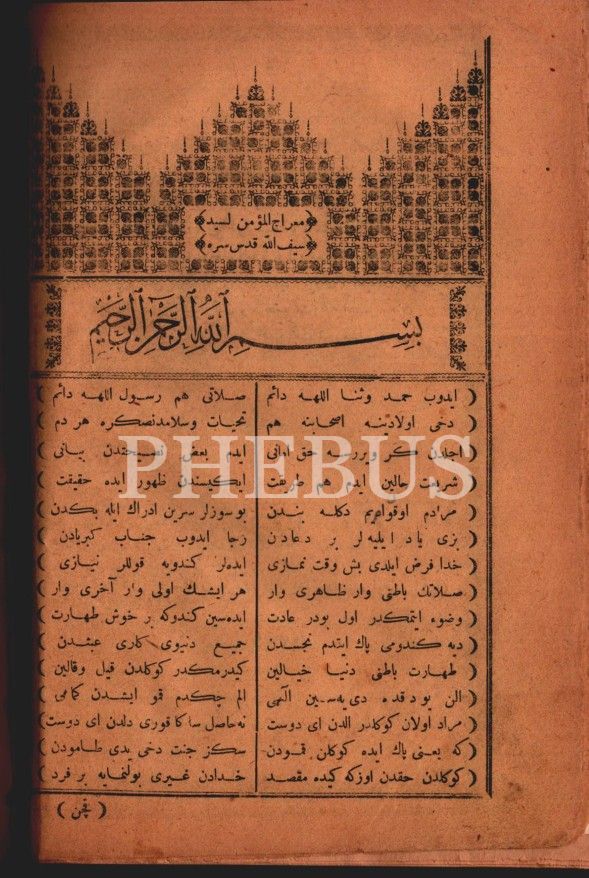 معراج المؤمن لسيد
سيف الله قدس سره
بسم الله الرحمن الرحيم
ايدوب حمد وثنا اللهه دائم صلاتى هم رسول اللهه دائم
دخى اولادينه اصحابنه هم تحيات وسلامدنصكره هر دم
اجلدن كر ويررسه حق امانى ايدم بعض نصيحتدن بيانى
شريعت حالين ايدم هم طريقت ايكيسندن ظهور ايده حقيقت
مرادم اوقوايم دكله بندن بو سوزلر سرين ادراك ايله بكدن
PHEBUS
بزى ياد ايليه لر بر دعادن رجا ايدوب جناب كبريادن
خدا فرض ايلدى بش وقت نمازى ايدهلر كندويه قوللر نيازى
صلاتك باطنى وار ظاهرى وار هر ايشك اولى وار آخرى وار
وضوء ايتمكدر اول بودر عادت ايده سين كندوكه بر خوش طهارت
ديه كندومى پاك ايتدم نجسدن جميع دنيوى كارى عبثدن
طهارت باطنى دنيا خيالين كيدرمكدر كوكلدن قيل وقالين
الن يودقده ديه سين الهى الم چكدم قمو ايشدن كماهى
مراد اولان كوكلدر الدن اى دوست نه حاصل ساكا قورى دلدن اى دوست
كه يعنى پاك ايده كوكلن قمودن سكز جنت دخى يدى طامودن
كوكلدن حقدن اوزكه كيده مقصد خدادن غيرى بولنمايه بر فرد
( قچن )